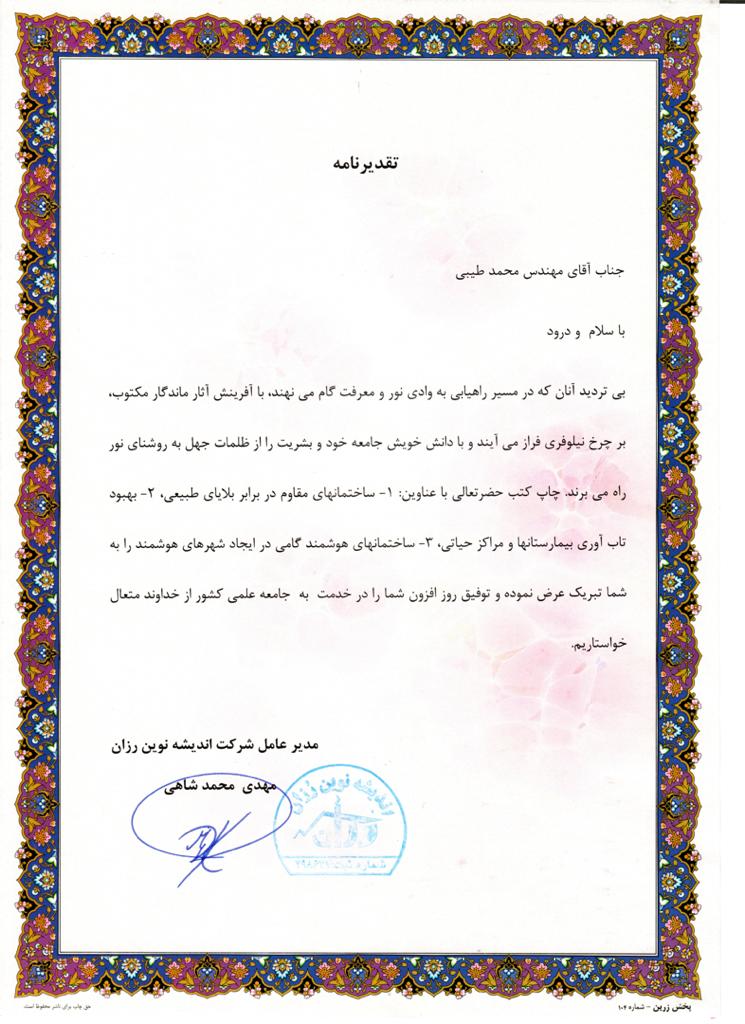 تقدیرنامه
جناب آقای مهندس محمد طیبی
با سلام و درود
بی تردید آنان که در مسیر راهیابی به وادی نور و معرفت گام می نهند، با آفرینش آثار ماندگار مکتوب،
بر چرخ نیلوفری فراز می آیند و با دانش خویش جامعه خود و بشریت را از ظلمات جهل به روشنای نور
راه می برند. چاپ کتب حضرتعالی با عناوین: ۱- ساختمانهای مقاوم در برابر بلایای طبیعی، ۲- بهبود
تاب آوری بیمارستانها و مراکز حیاتی، ۳- ساختمانهای هوشمند گامی در ایجاد شهرهای هوشمند را به
شما تبریک عرض نموده و توفیق روز افزون شما را در خدمت به جامعه علمی کشور از خداوند متعال
خواستاریم.
مدیر عامل شرکت اندیشه نوین رزان
مهدی محمد شاهی
اندیشه نوین رزان
رزان
شماره ثبت:
پخش زرین - شماره ۱۰۴
حق چاپ برای ناشر محفوظ است.